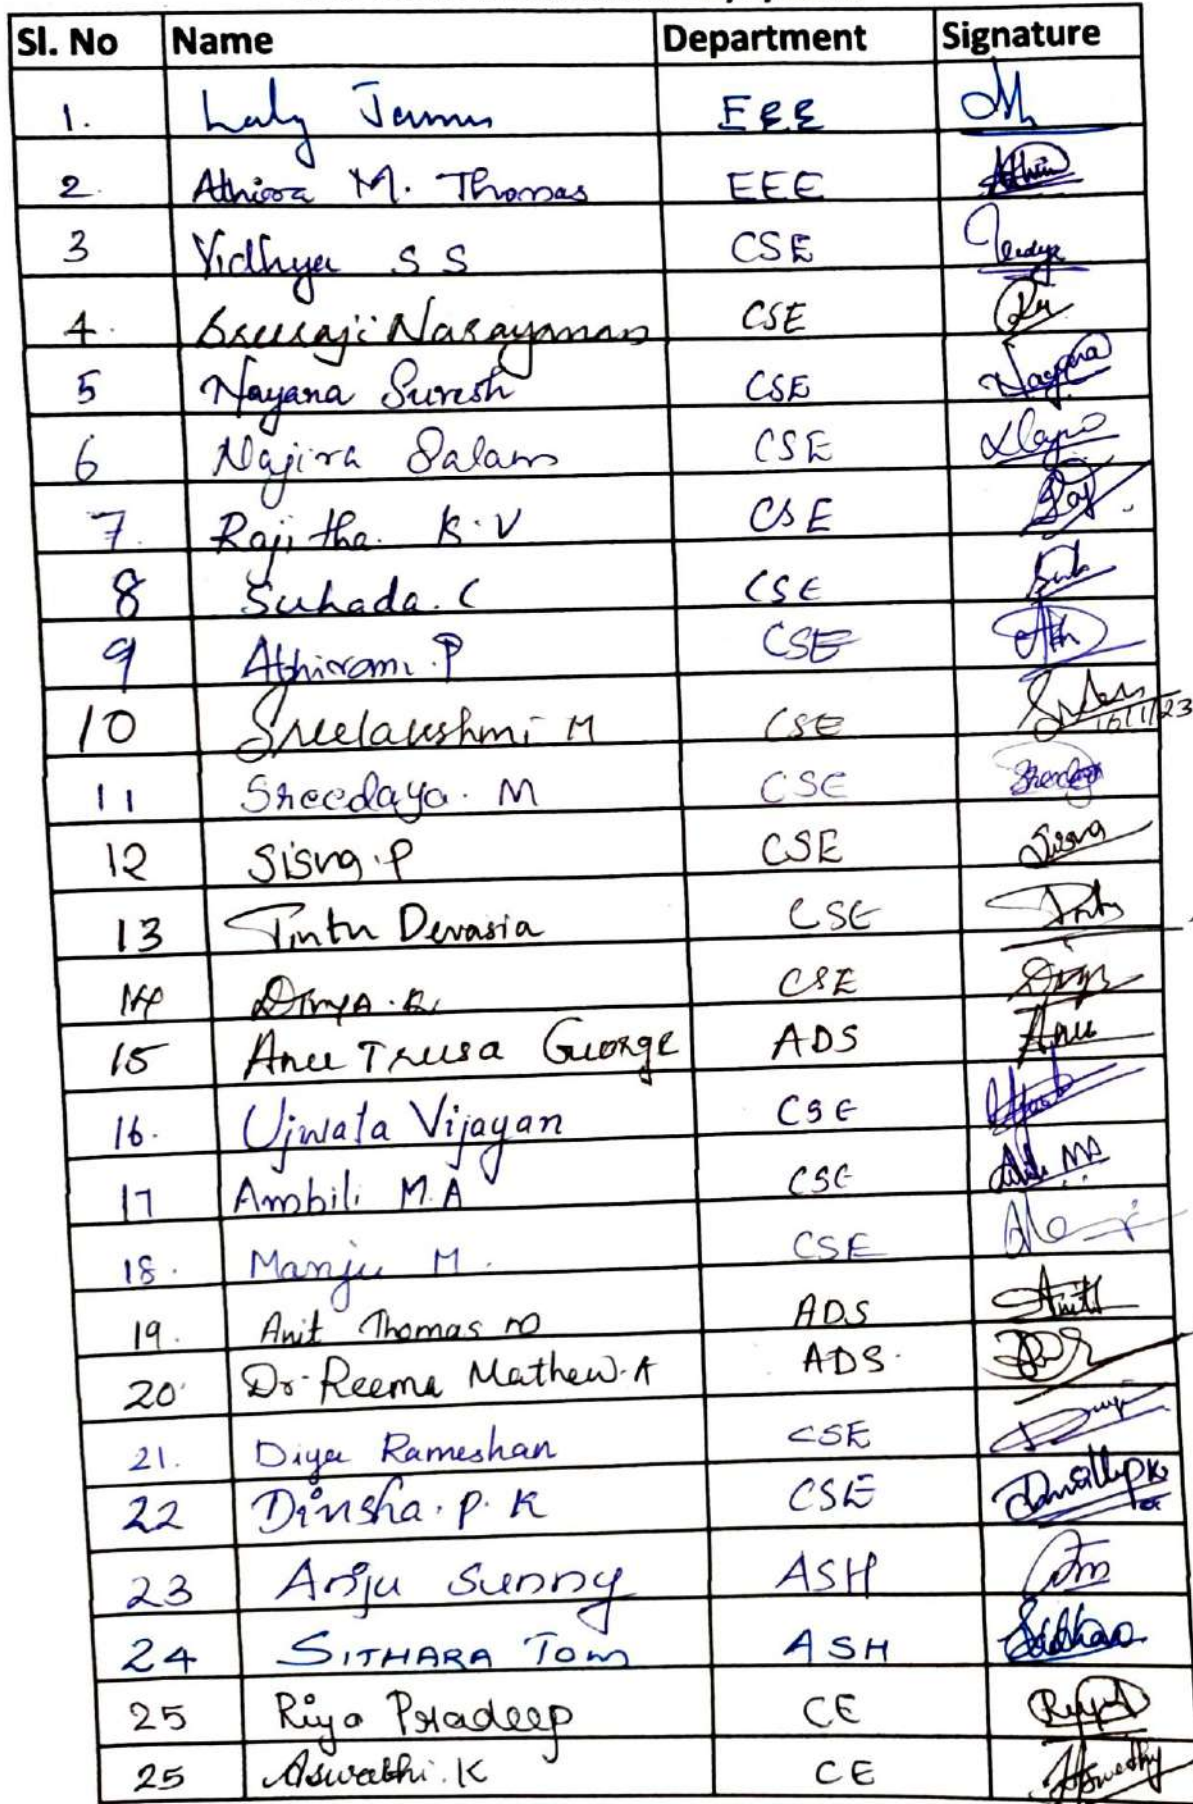 Sl. No Name Department Signature
1. Laly James EEE
2. Athira M. Thomas EEE
3 Vidhya S S CSE
4. Sreeraji Narayanan CSE
5 Nayana Suresh CSE Nayana
6 Najira Salam CSE
7. Rajitha. K.V CSE
8 Suhada. C CSE
9 Athirami. P CSE Ath
10 Sreelakshmi M CSE 10/1/23
11 Sreedaya. M CSE
12 Sisna. P CSE Sisna
13 Tintu Devasia CSE
14 Divya. R CSE
15 Anu Treesa George ADS Anu
16. Ujwala Vijayan CSE
17 Ambili M.A CSE
18. Manju M. CSE
19. Anit Thomas M ADS Anit
20 Dr. Reema Mathew. A ADS.
21. Diya Rameshan CSE
22 Dinsha. P. K CSE
23 Anju Sunny ASH
24 SITHARA TOM ASH
25 Riya Pradeep CE
25 Aswathi. K CE Aswathy